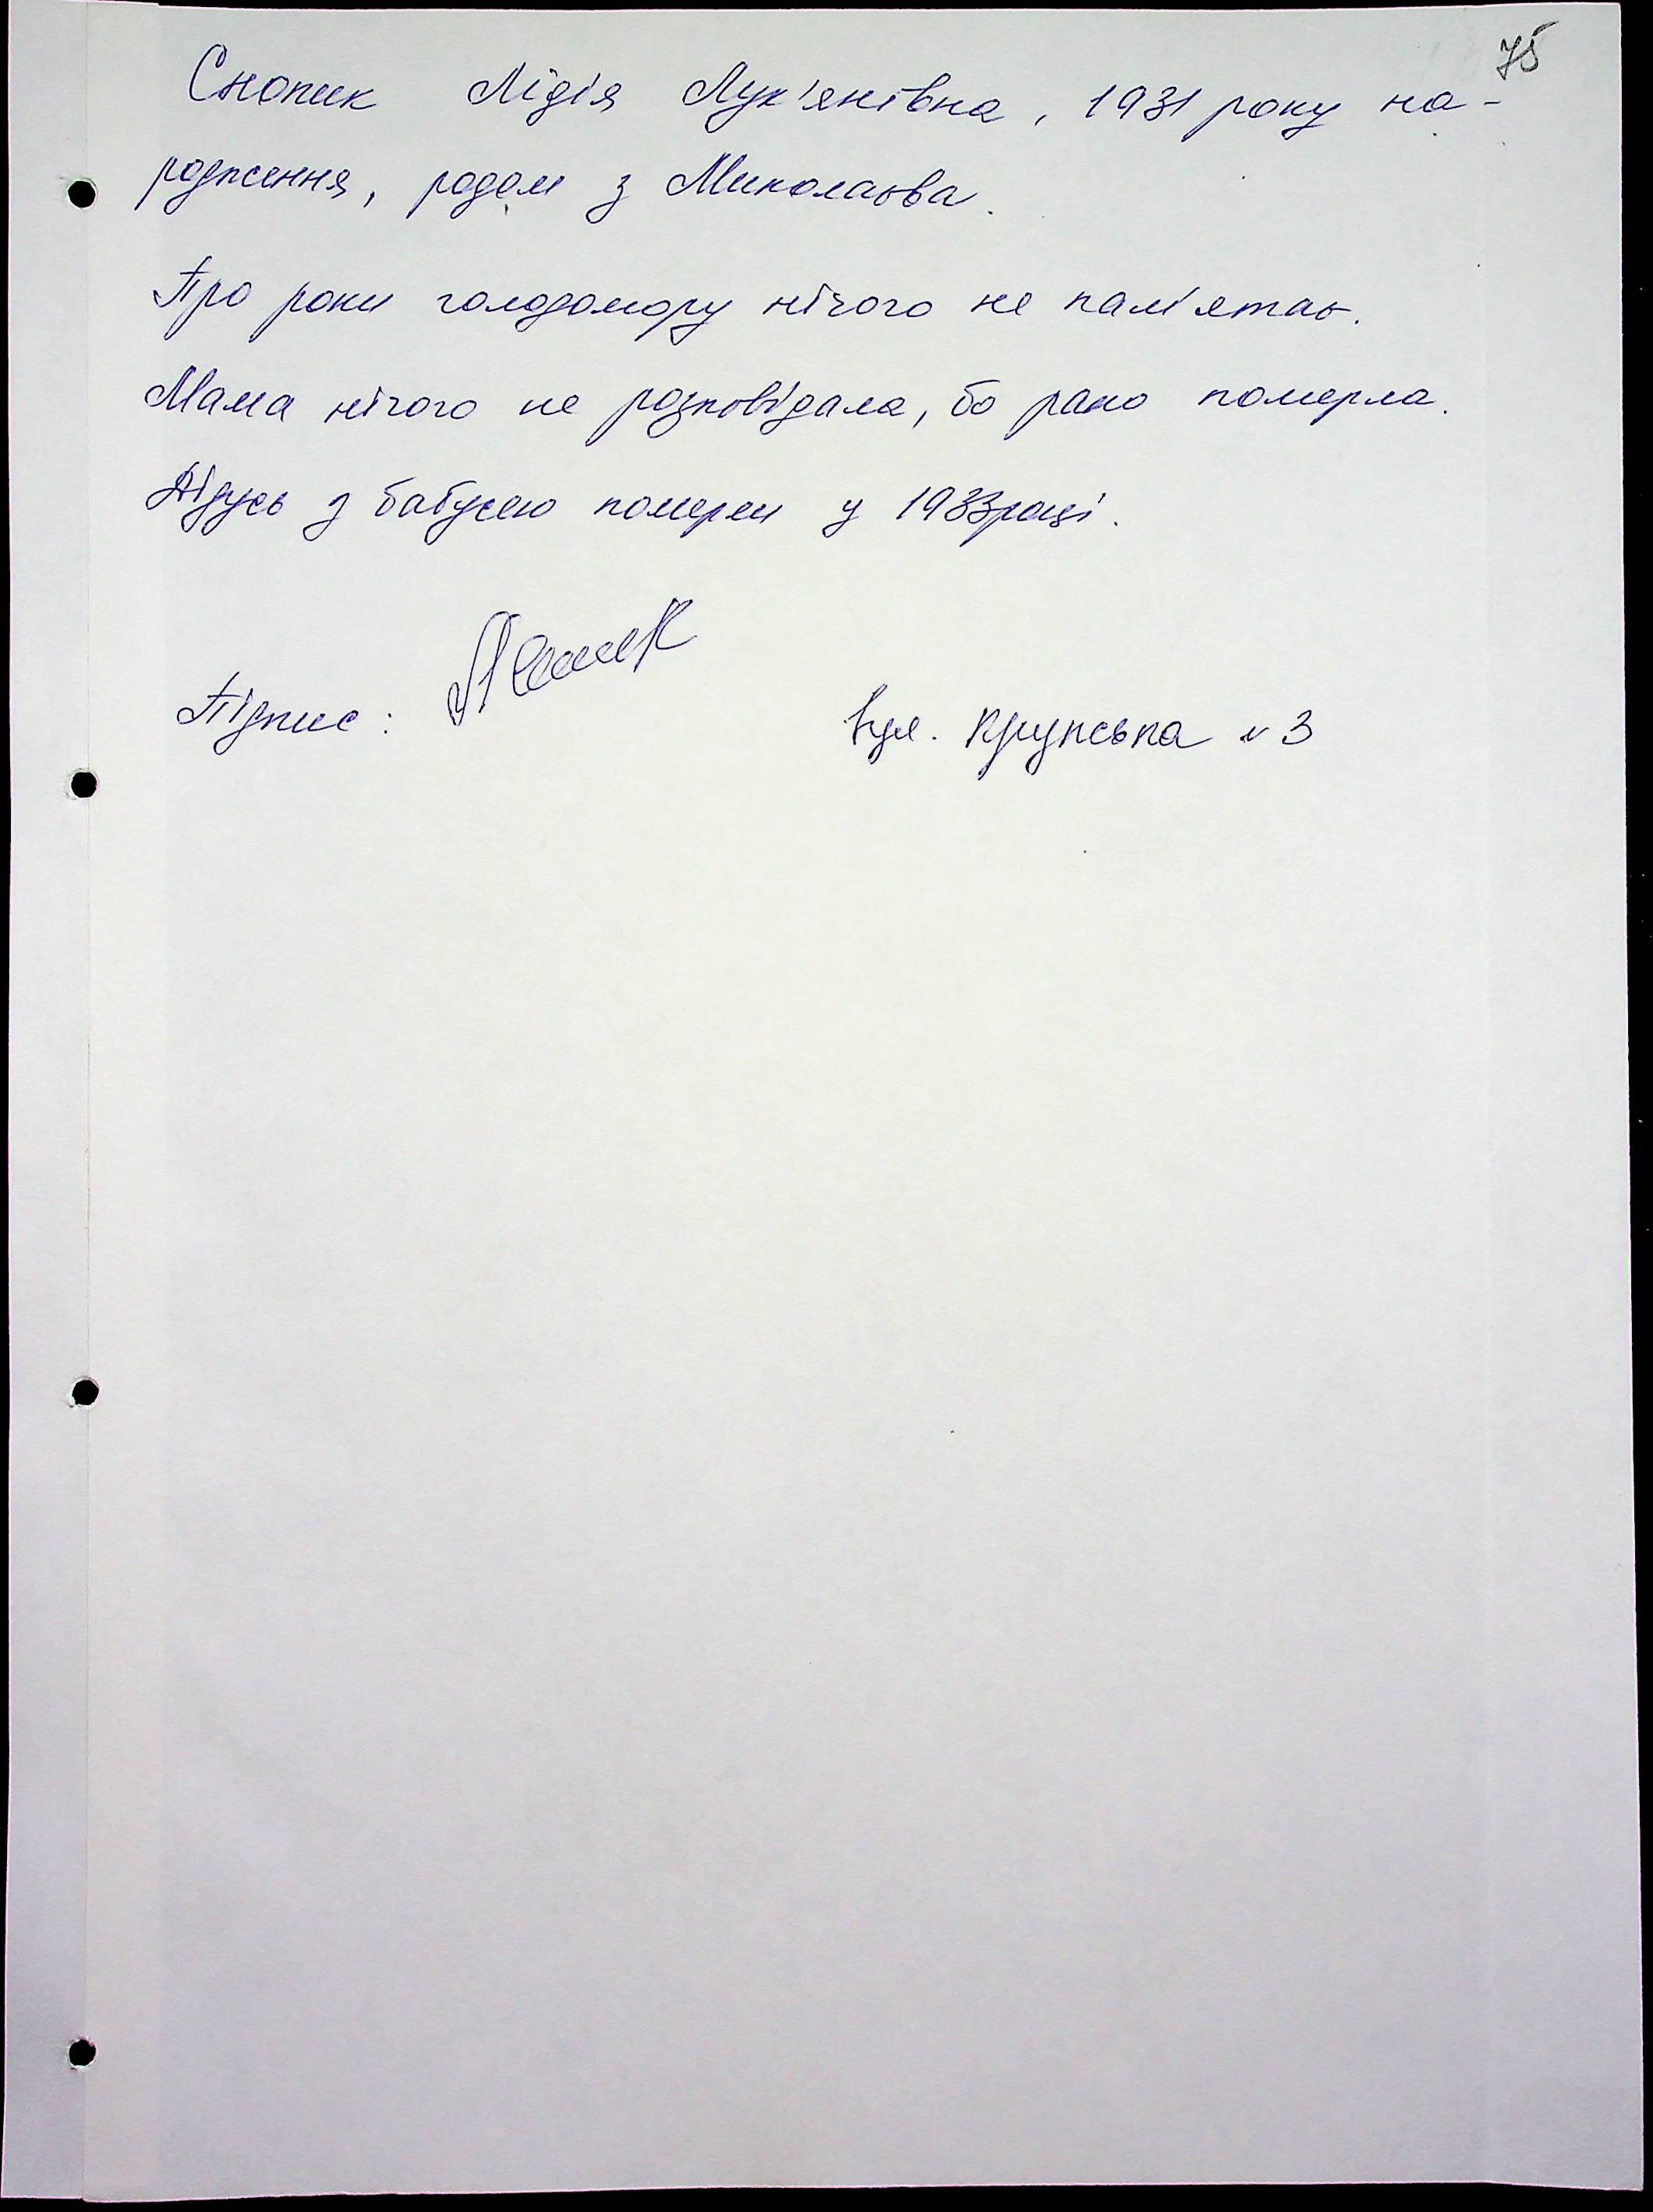 75
Снопик Лідія Лук'янівна, 1931 року на-
родження, родом з Миколаєва.
Про роки голодомору нічого не пам'ятає.
Мама нічого не розповідала, бо рано померла.
Дідусь з бабусею померли у 1933році.
Підпис:
вул. Крупська 3